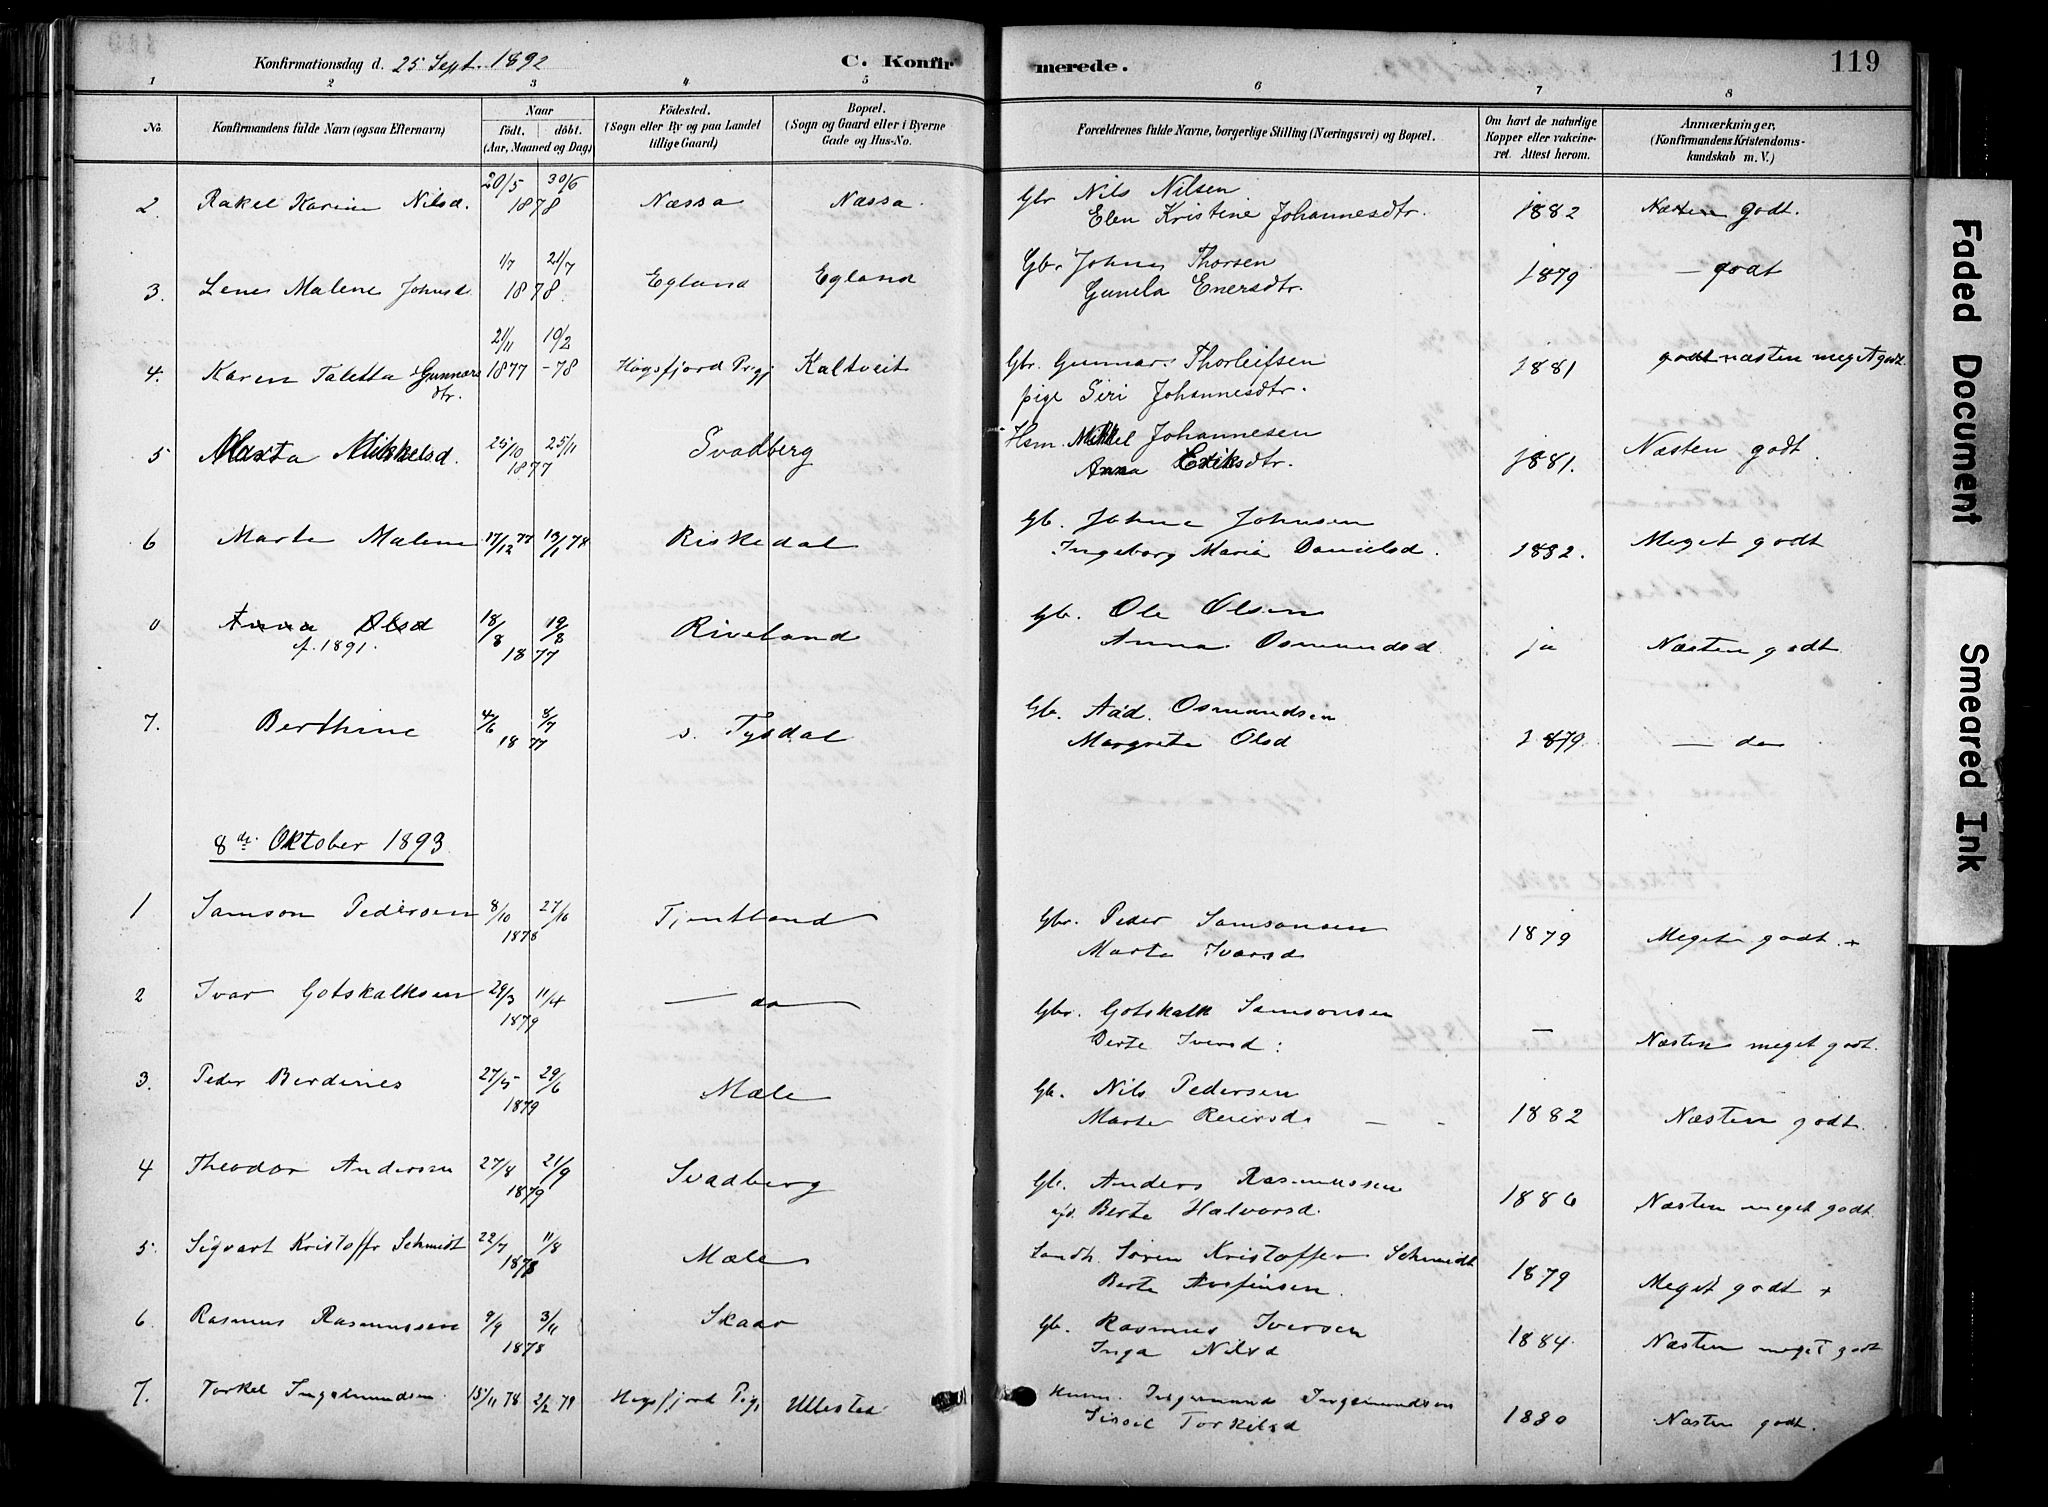 Konfirmationsdag d. 25 Sept. 1892 C. Konfir merede. 119
1 2 3 4 5 6 7 8
No. Konfirmandens fulde Navn (ogsaa Efternavn) Naar födt. döbt. (Aar, Maaned og Dag) Födested. (Sogn eller By og paa Landet tillige Gaard) Bopæl. (Sogn og Gaard eller i Byerne Gade og Hus-No. Forældrenes fulde Navne, borgerlige Stilling (Næringsvei) og Bopæl. Om havt de naturlige Kopper eller vakcineret. Attest herom. Anmærkninger. (Konfirmandens Kristendomskundskab m. V.)
2. Rakel Karine Nilsd. 20/5 30/6 1878 Næssa Næssa. Gbr Nils Nilsen 1882 Næsten godt.
Elen Kristine Johannesdtr.
3. Lene Malene Johnsd. 1/7 21/7 1878. Egland Egland Gbr Johnes Thorsen 1879 — godt
Gunela Enersdtr.
4. Karen Taletta Gunnars dtr. 21/11 1877 10/2 -78 Høgsfjord Prgj Kaltveit Gbr. Gunnar Thorleifsen 1881 godt næsten meget godt.
pige Siri Johannesdtr.
5 Marta Mikkelsd. 25/10 25/11 1877 Svadberg Hsm. Mikkel Johannesen 1881. Næsten godt.
Anna Eriksdtr.
6 Marte Malene 17/12 77 13/1 78 Riskedal Gb. Johne Johnsen 1882. Meget godt
Ingeborg Marie Danielsd.
0 Anna Olsd 18/8 19/8 1877 Riveland Gb. Ole Olsen ja Næsten godt
f. 1891. Anna Osmundsd
7. Berthine 4/6 8/7 1877 s. Tysdal Gb. Aad. Osmundsen 1879. — do
Margreta Olsd
8de Oktober 1893
1 Samson Pedersen 8/10 27/10 1878 Tjentland Gbr. Peder Samsonsen 1879 Meget godt. +
Marta Ivarsd
2 Ivar Gotskalksen 29/3 11/4 1879 — do — Gbr. Gotskalk Samsonsen — Næsten meget godt.
Berte Iversd:
3. Peder Berdines 27/5 29/6 1879 Mæle Gb. Nils Pedersen 1882 Næsten godt.
Marte Reiersd. — -
4 Theodor Andersen 27/8 21/9 1879 Svadberg Gb. Anders Rasmussen 1886 Næsten meget godt.
Berte Halvorsd.
5. Sigvart Kristoffr Schmidt 22/7 11/8 1878 Mæle Landh. Søren Kristoffer Schmidt 1879 Meget godt +
Berte
6. Rasmus Rasmussen 9/9 3/11 1878 Skaar Gb. Rasmus Iversen 1884. Næsten meget godt
Inga Nilsd
7. Torkel Ingemundsen 15/11 78 2/2 79 Høgsfjord Pgj Ullestad Husm. Ingemund Ingemundsen 1880 Næsten godt.
Sissel Torkilsd
Faded Document
Smeared Ink